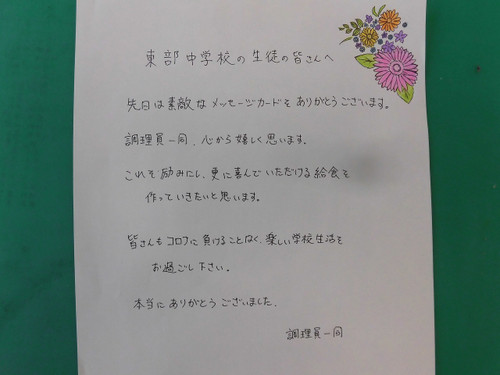 東部中学校の生徒の皆さんへ
先日は素敵なメッセージカードをありがとうございます。
調理員一同、心から嬉しく思います。
これを励みにし、更に喜んでいただける給食を
作っていきたいと思います。
皆さんもコロナに負けることなく、楽しい学校生活を
お過ごし下さい。
本当にありがとうございました。
調理員一同